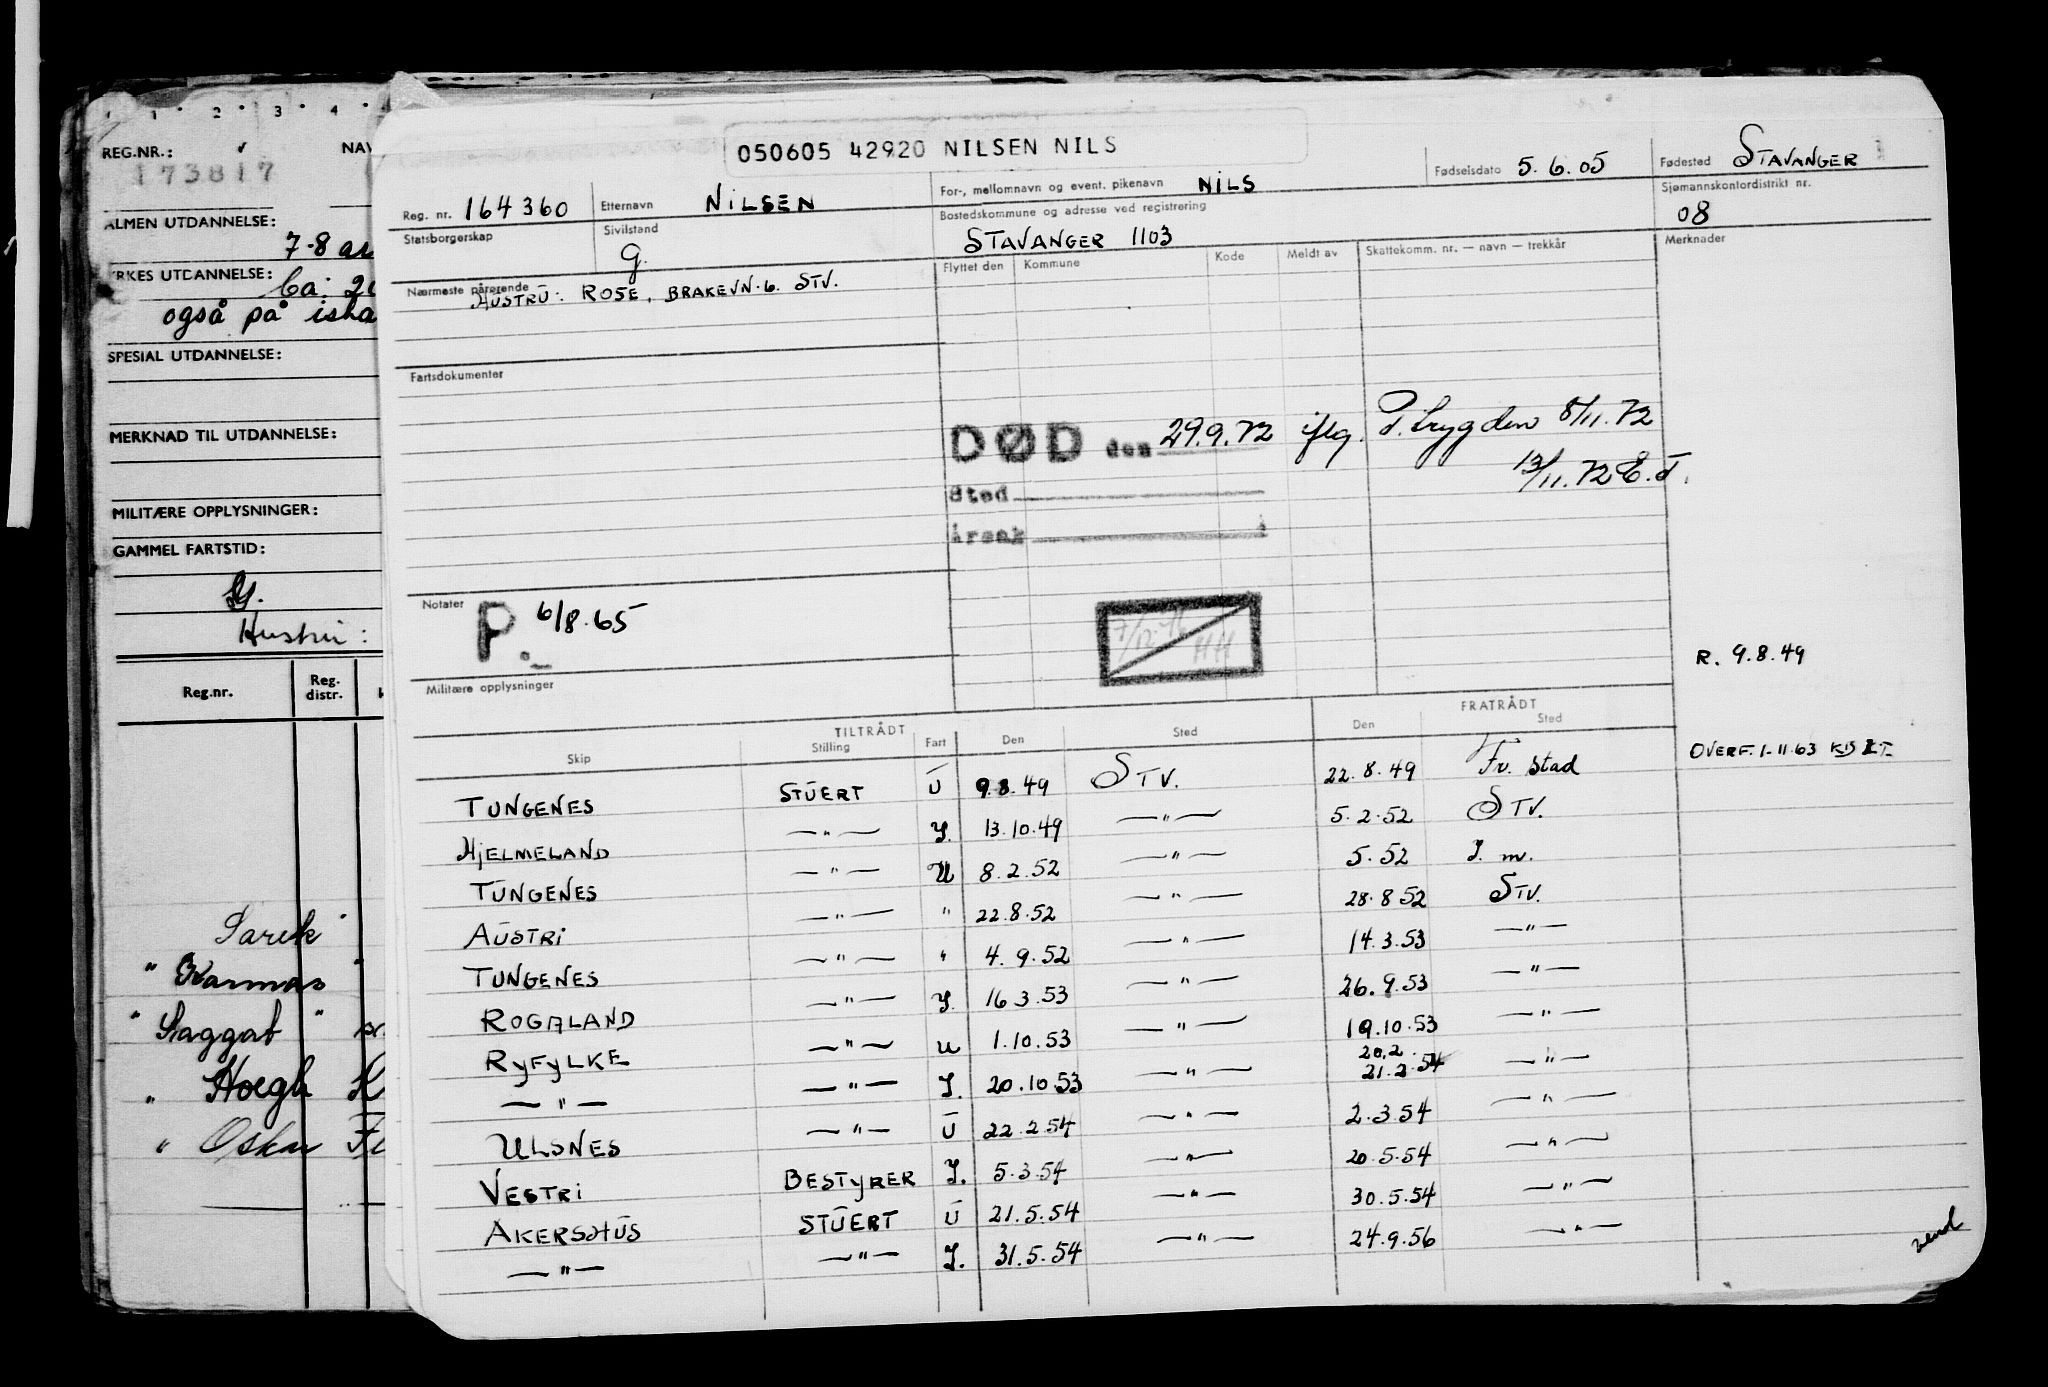 1 2 3 4
REG.NR.: NAV
173817
ALMEN UTDANNELSE:
7-8 år
YRKES UTDANNELSE:
også på
SPESIAL UTDANNELSE:
MERKNAD TIL UTDANNELSE:
MILITÆRE OPPLYSNINGER:
GAMMEL FARTSTID:
Hustru:
Reg.nr. Reg. distr.
Sarek
" Karmas "
" Saggat "
" Hoegh
" Oskar
050605 42920 NILSEN NILS
Reg. nr. 164360 Etternavn NILSEN For-, mellomnavn og event. pikenavn NILS Fødselsdato 5.6.05 Fødested STAVANGER
Statsborgerskap Sivilstand g. Bostedskommune og adresse ved registrering STAVANGER 1103 Sjømannskontordistrikt nr. 08
Nærmeste pårørende HUSTRU: ROSE, BRAKEVN. 6. STV.
Flyttet den Kommune Kode Meldt av Skattekomm. nr. — navn — trekkår Merknader
Fartsdokumenter
DØD den 29.9.72 iflg. P.trygden 8/11.72
13/11.72 E.T.
Sted
Årsak
Notater P. 6/8.65
R. 9.8.49
Militære opplysninger
TILTRÅDT FRATRÅDT
Skip Stilling Fart Den Sted Den Sted
OVERF. 1-11-63
TUNGENES STUERT U 9.8.49 STV. 22.8.49 Fr. stad
HJELMELAND —"— I. 13.10.49 —"— 5.2.52 STV.
TUNGENES —"— U 8.2.52 —"— 5.52 I. m.
AUSTRI —"— " 22.8.52 —"— 28.8 52 STV.
TUNGENES —"— " 4.9.52 —"— 14.3.53 —"—
ROGALAND —"— I. 16 3.53 —"— 26.9.53 —"—
RYFYLKE —"— U 1.10.53 —"— 19.10.53 —"—
—"— —"— I. 20.10.53 —"— 20.2. 21.2.54 —"—
ULSNES —"— U 22.2.54 —"— 2.3.54 —"—
VESTRI BESTYRER I. 5.3.54 —"— 20.5.54 —"—
AKERSHUS STUERT U 21.5.54 —"— 30.5.54 —"—
—"— —"— I. 31.5.54 —"— 24.9.56 —"—
vend